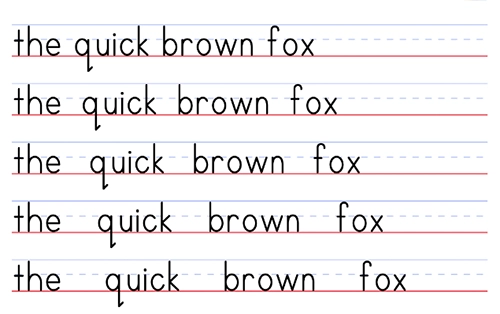 the quick brown fox
the quick brown fox
the quick brown fox
the quick brown fox
the quick brown fox